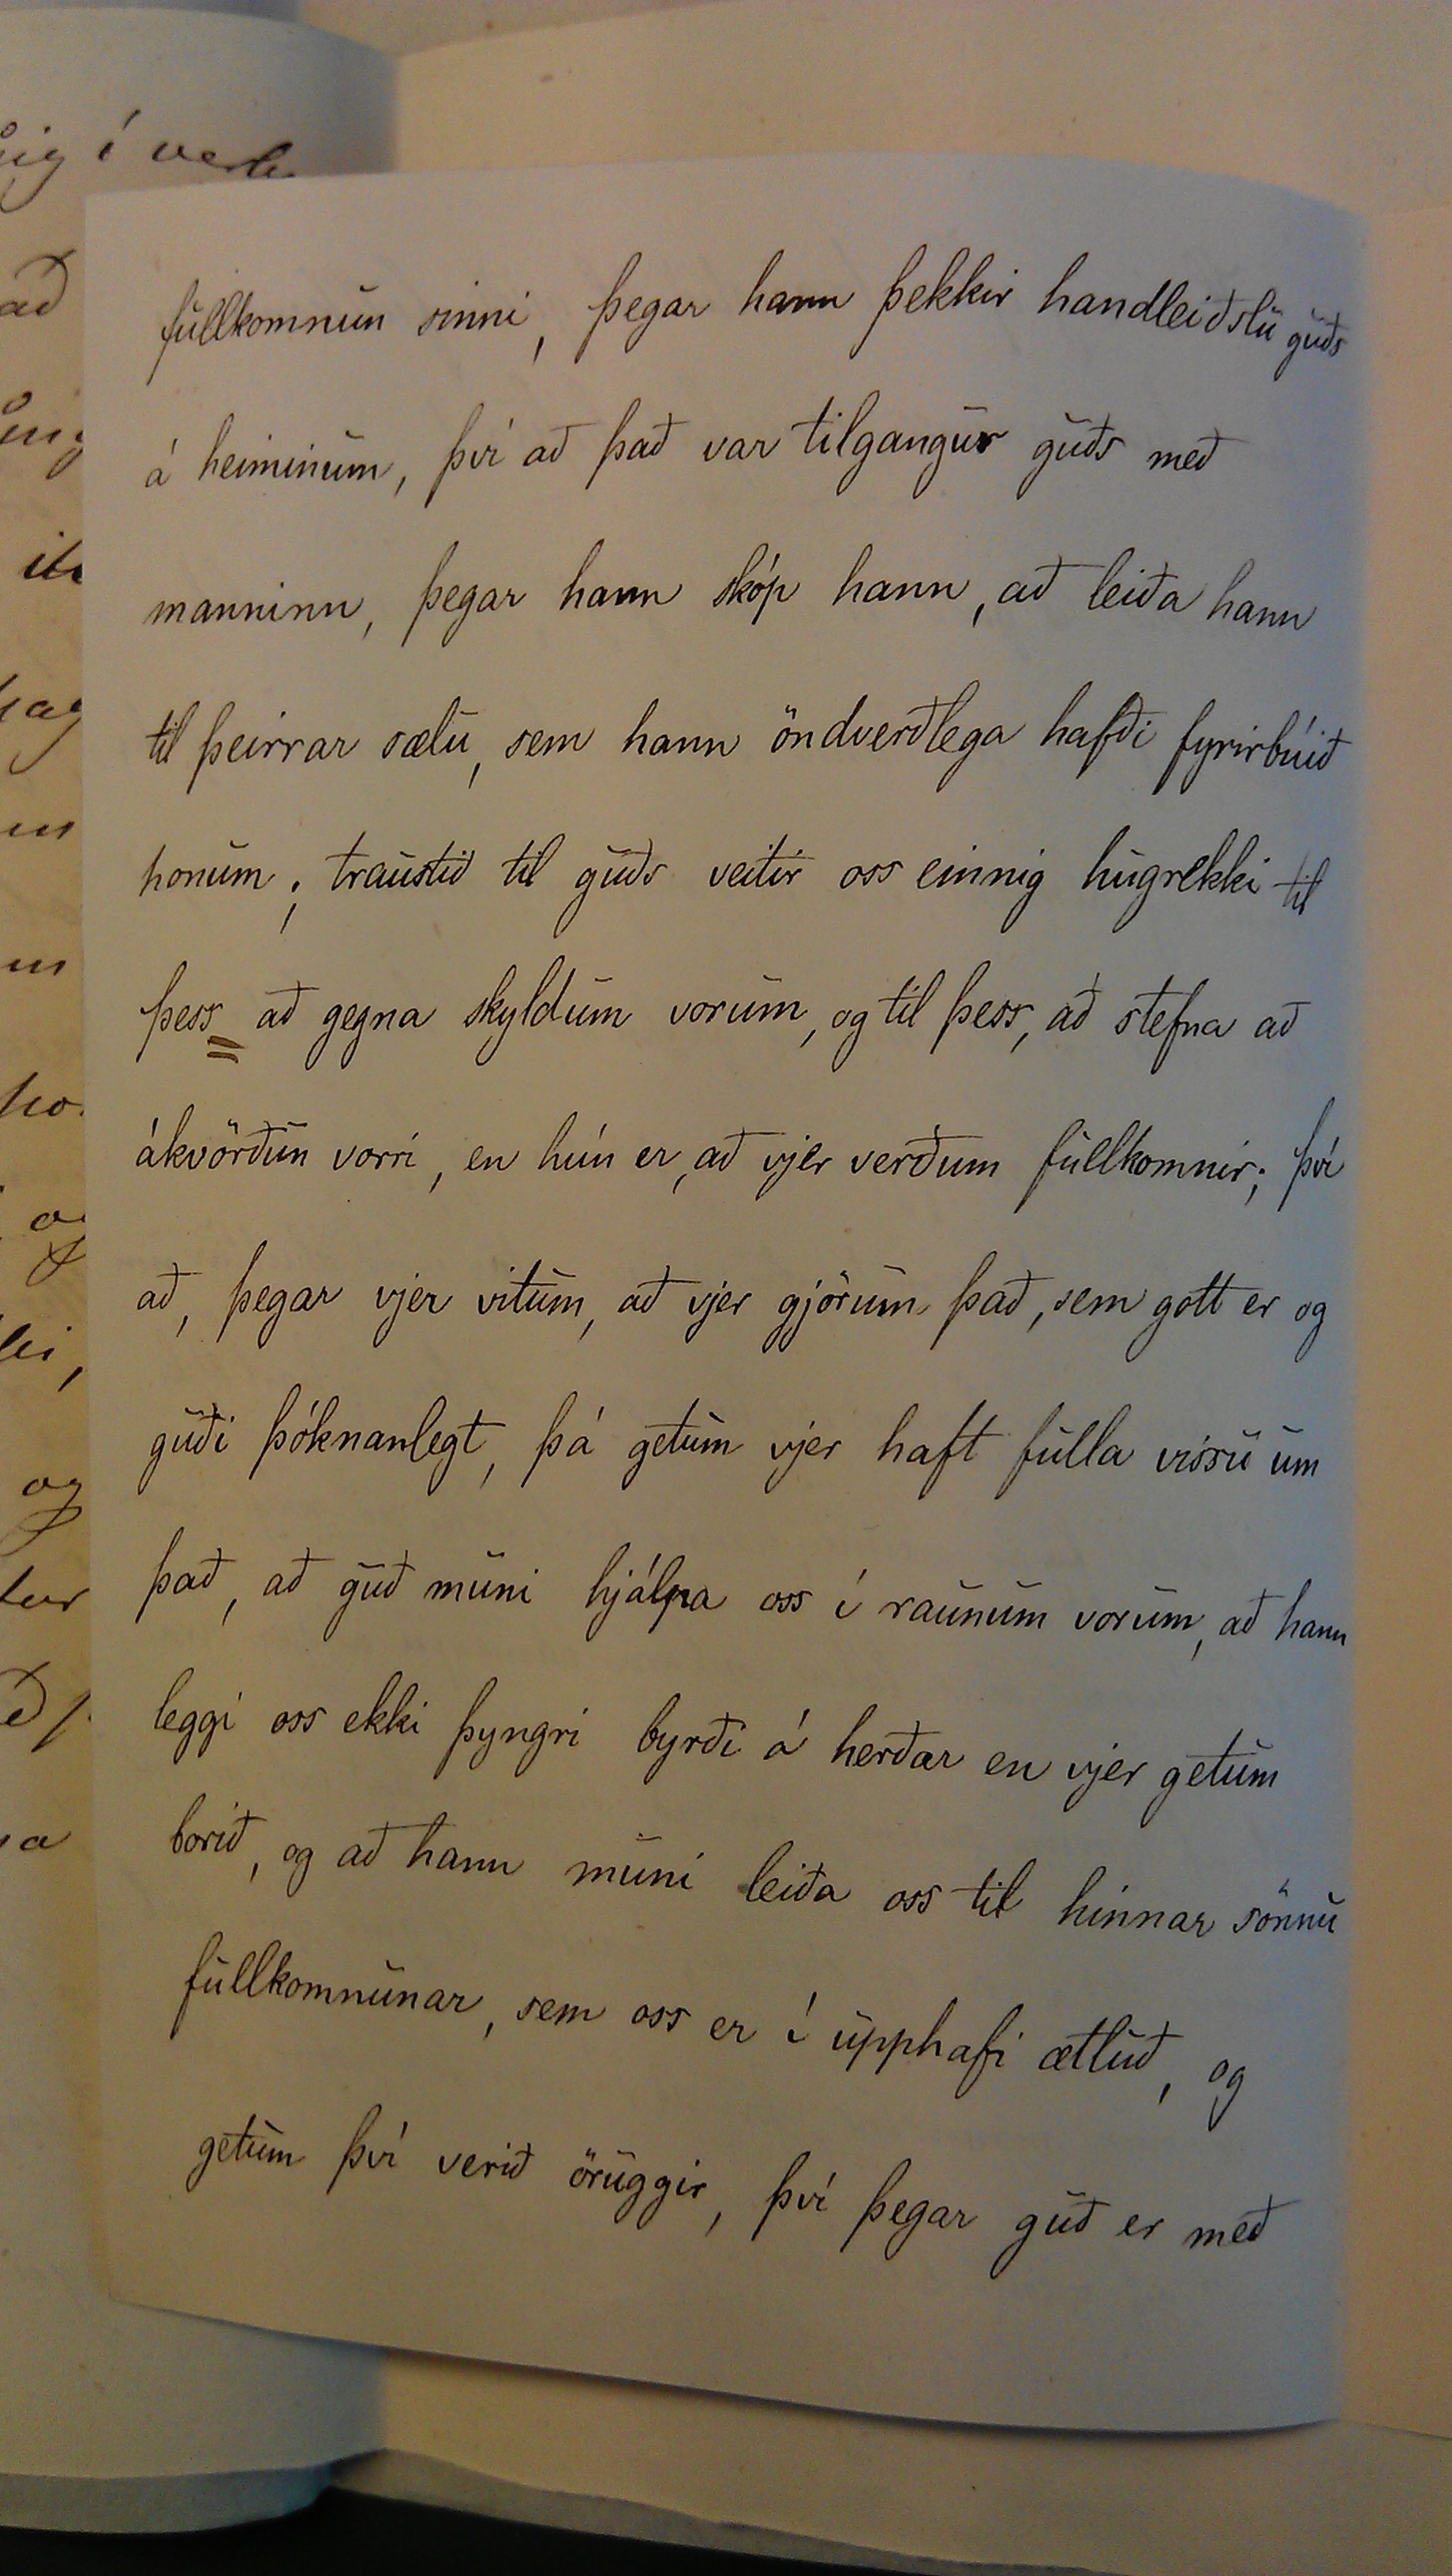 fullkomnun sinni, þegar hann þekkir handleiðslu guðs
á heiminum, því að það var tilgangur guðs með
manninn, þegar hann skóp hann, að leiða hann
til þeirrar sælu, sem hann öndverðlega hafði fyrirbúið
honum; traustið til guðs veitir oss einnig hugrekki til
þess að gegna skyldum vorum, og til þess, að stefna að
ákvörðun vorri, en hún er, að vjer verðum fullkomnir; því
að, þegar vjer vitum, að vjer gjörum það, sem gott er og
guði þóknanlegt, þá getum vjer haft fulla vissu um
það, að guð muni hjálpa oss í raunum vorum, að hann
leggi oss ekki þyngri byrði á herðar en vjer getum
borið, og að hann muni leiða oss til hinnar sönnu
fullkomnunar, sem oss er í upphafi ætluð, og
getum því verið öruggir, því þegar guð er með